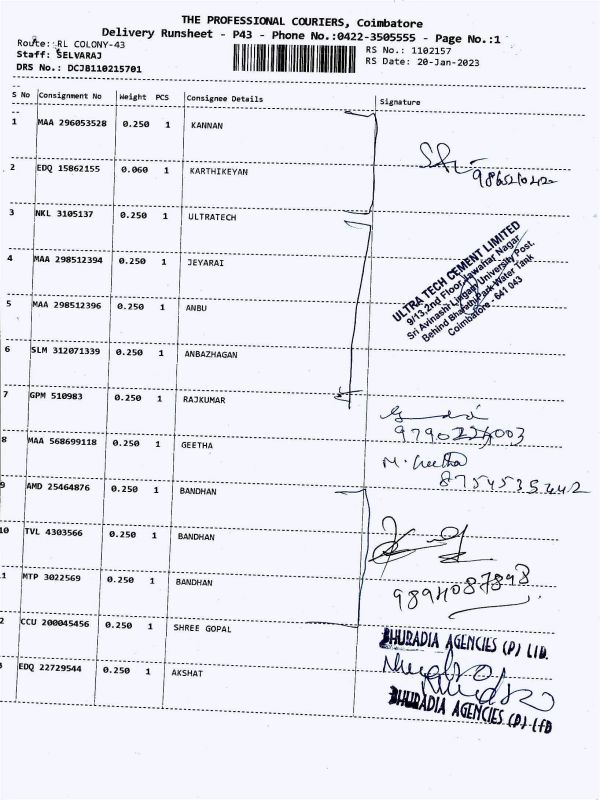 THE PROFESSIONAL COURIERS, Coimbatore
Delivery Runsheet - P43 - Phone No.:0422-3505555 - Page No.:1
Route: RL COLONY-43
RS No.: 1102157
Staff: SELVARAJ
RS Date: 20-Jan-2023
DRS No.: DCJB110215701
S No Consignment No Weight PCS Consignee Details Signature
1 MAA 296053528 0.250 1 KANNAN
2 EDQ 15862155 0.060 1 KARTHIKEYAN
3 NKL 3105137 0.250 1 ULTRATECH
4 MAA 298512394 0.250 1 JEYARAI
ULTRA TECH CEMENT LIMITED
9/13, 2nd Floor, Jawahar Nagar
Sri Avinashi Lingam University Post,
Behind Bharathi Park Water Tank
Coimbatore - 641 043
5 MAA 298512396 0.250 1 ANBU
6 SLM 312071339 0.250 1 ANBAZHAGAN
7 GPM 510983 0.250 1 RAJKUMAR
8 MAA 568699118 0.250 1 GEETHA
M. Geetha
8754535442
9 AMD 25464876 0.250 1 BANDHAN
10 TVL 4303566 0.250 1 BANDHAN
1 MTP 3022569 0.250 1 BANDHAN
9894087898
2 CCU 200045456 0.250 1 SHREE GOPAL
BHURADIA AGENCIES (P) LTD.
EDQ 22729544 0.250 1 AKSHAT
BHURADIA AGENCIES (P) LTD